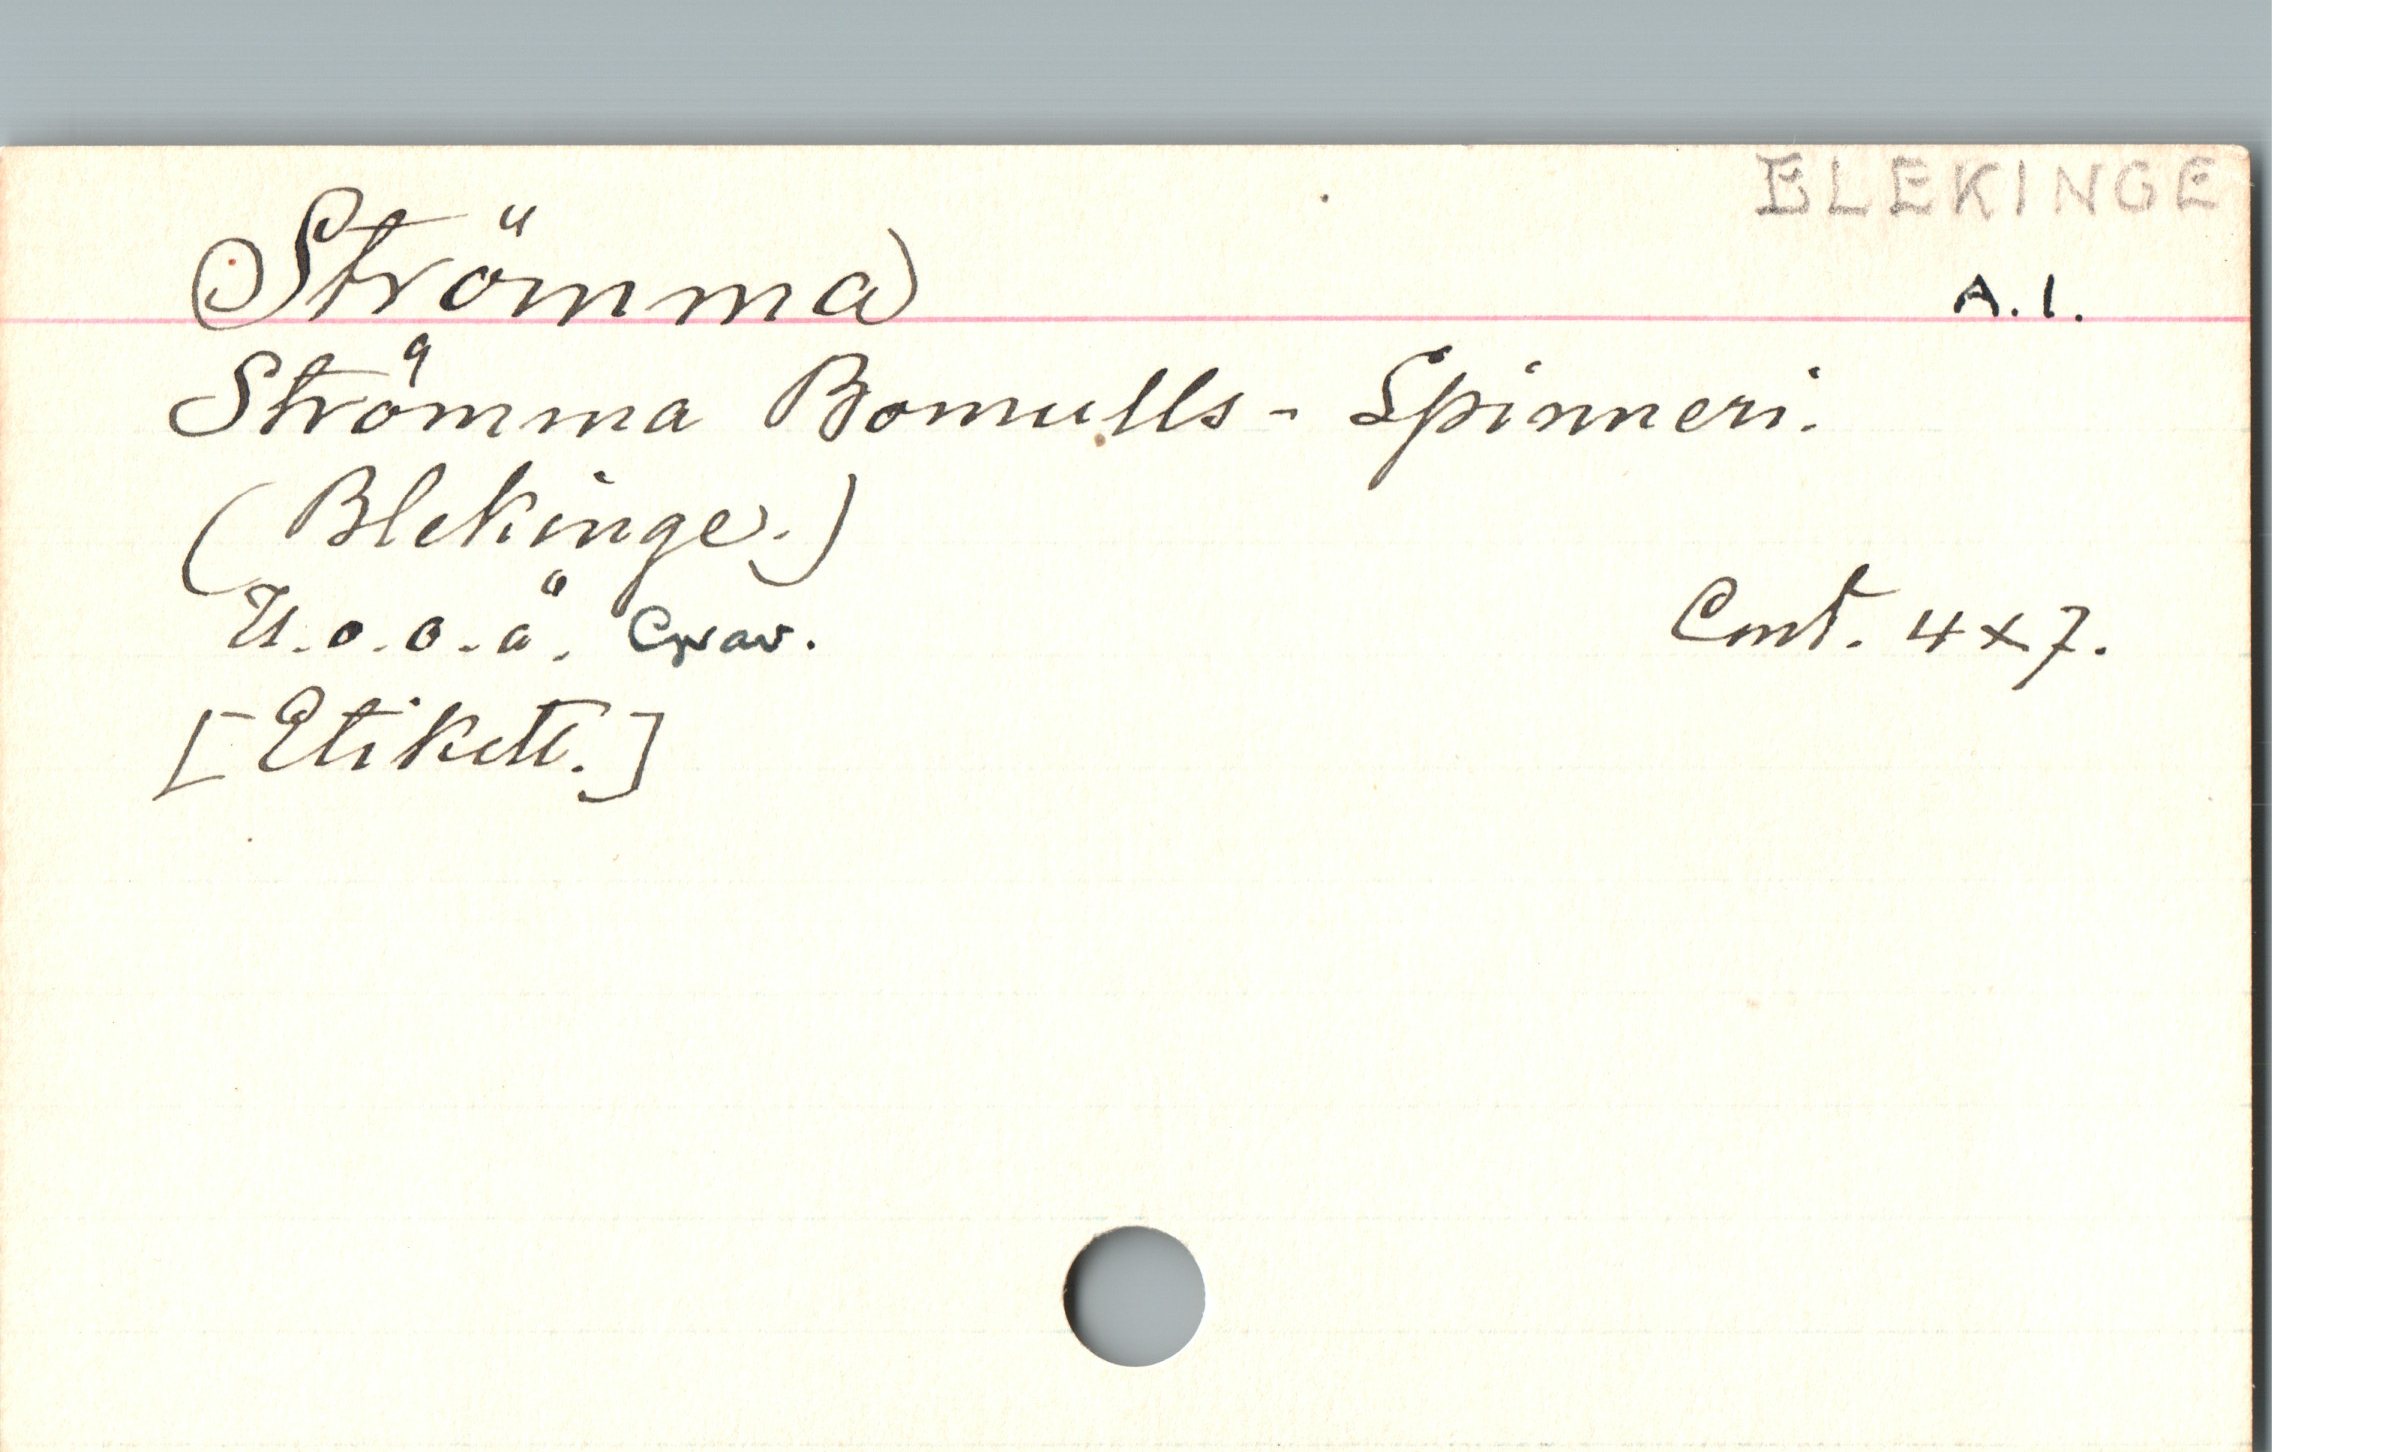 BLEKINGE
Strömma
A. 1.
Strömma Bomulls-Spinneri.
(Blekinge.)
U. o. o. å. Grav. Cont. 4x7.
[Etikett.]